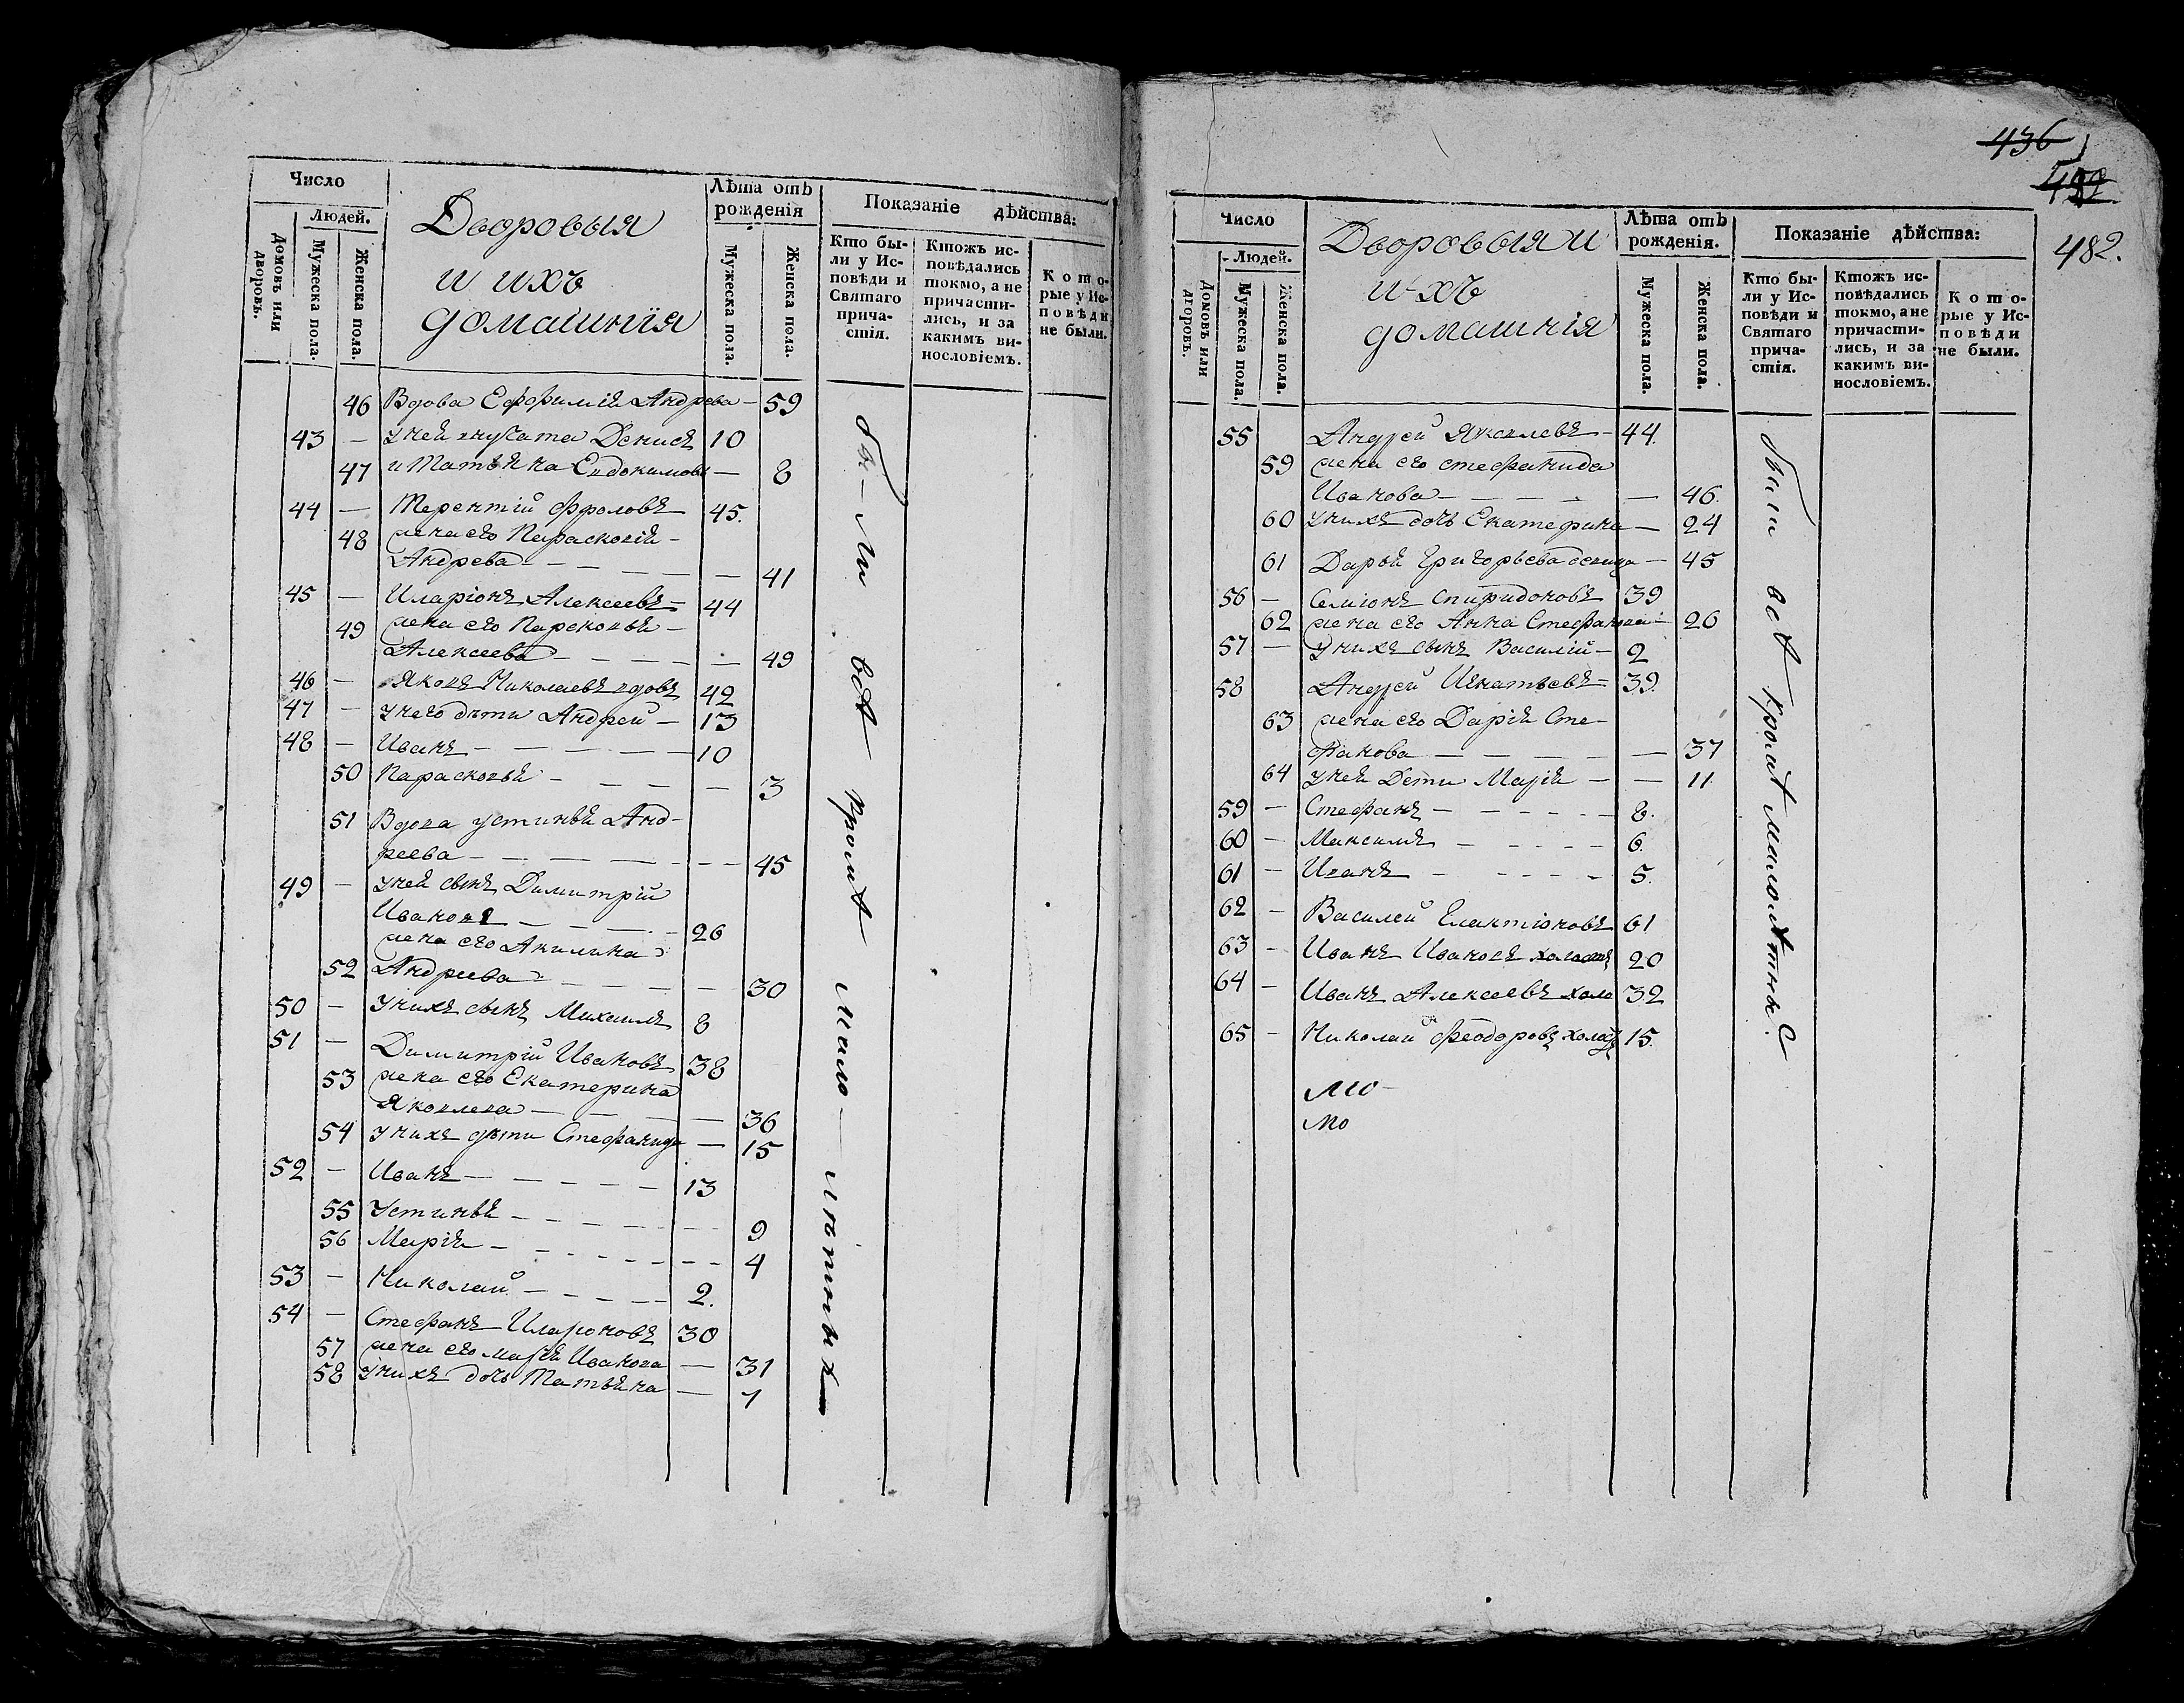 Число
Людей.
Домовъ или дворовъ.
Мужеска пола.
Женска пола.
Дворовыя
и ихъ
домашнія
Лѣта отъ рожденія
Мужеска пола.
Женска пола.
Показаніе дѣйства:
Кто были у Исповѣди и Святаго причастія.
Ктожъ исповѣдались токмо, а не причастились, и за какимъ винословіемъ.
Которые у Исповѣди не были.
46 Вдова Ефимія Андрева — 59
43 — у ней внучата Денисъ 10
47 и Татьяна Евдокимовы — 8
44 — Терентій Фроловъ 45.
48 жена его Парасковія —
Андрева — 41
45 — Иларіонъ Алексеевъ 44
49 жена его Парсковья —
Алексеева — 49
46 — Яковъ Николаевъ вдовъ 42
47 — у него дѣти Андрей — 13
48 — Иванъ — 10
50 Парасковья — 3
51 Вдова Устинья Анд-
реева — 45
49 — у ней сынъ Димитрій
Ивановъ — 26
жена его Акилина
52 Андреева — 30
50 — у нихъ сынъ Михаилъ 8
51 — Димитрій Ивановъ 38
53 жена его Екатерина
Яковлева — 36
54 у нихъ дѣти Стефанида — 15
52 — Иванъ — 13
55 Устинья — 9
56 Марія — 4
53 — Николай — 2.
54 — Стефанъ Иларіоновъ 30
57 жена его Марія Иванова — 31
58 у нихъ дочь Татьяна — 7
бы-ли всѣ кромѣ мало-лѣтныхъ
436
482.
Число
Людей.
Домовъ или дворовъ.
Мужеска пола.
Женска пола.
Дворовыя и
ихъ
домашнія
Лѣта отъ рожденія.
Мужеска пола.
Женска пола.
Показаніе дѣйства:
Кто были у Исповѣди и Святаго причастія.
Ктожъ исповѣдались токмо, а не причастились, и за какимъ винословіемъ.
Которые у Исповѣди не были.
55 Андрей Яковлевъ — 44.
59 жена его Стефанида
Иванова — 46.
60 у нихъ дочь Екатерина — 24
61 Дарья Григорьева девица — 45
56 — Семіонъ Спиридоновъ 39
62 жена его Анна Стефанова — 26
57 — у нихъ сынъ Василій — 2
58 Андрей Игнатьевъ 39.
63 жена его Дарія Сте-
фанова — 37
64 у ней Дети Марія — 11.
59 — Стефанъ — 8.
60 — Максимъ — 6.
61 — Иванъ — 5.
62 — Василей Галактіоновъ 61
63 — Иванъ Ивановъ холостъ 20
64 — Иванъ Алексеевъ холо 32
65 — Николай Феодоровъ холо 15.
мо
были всѣ кромѣ малолѣтныхъ